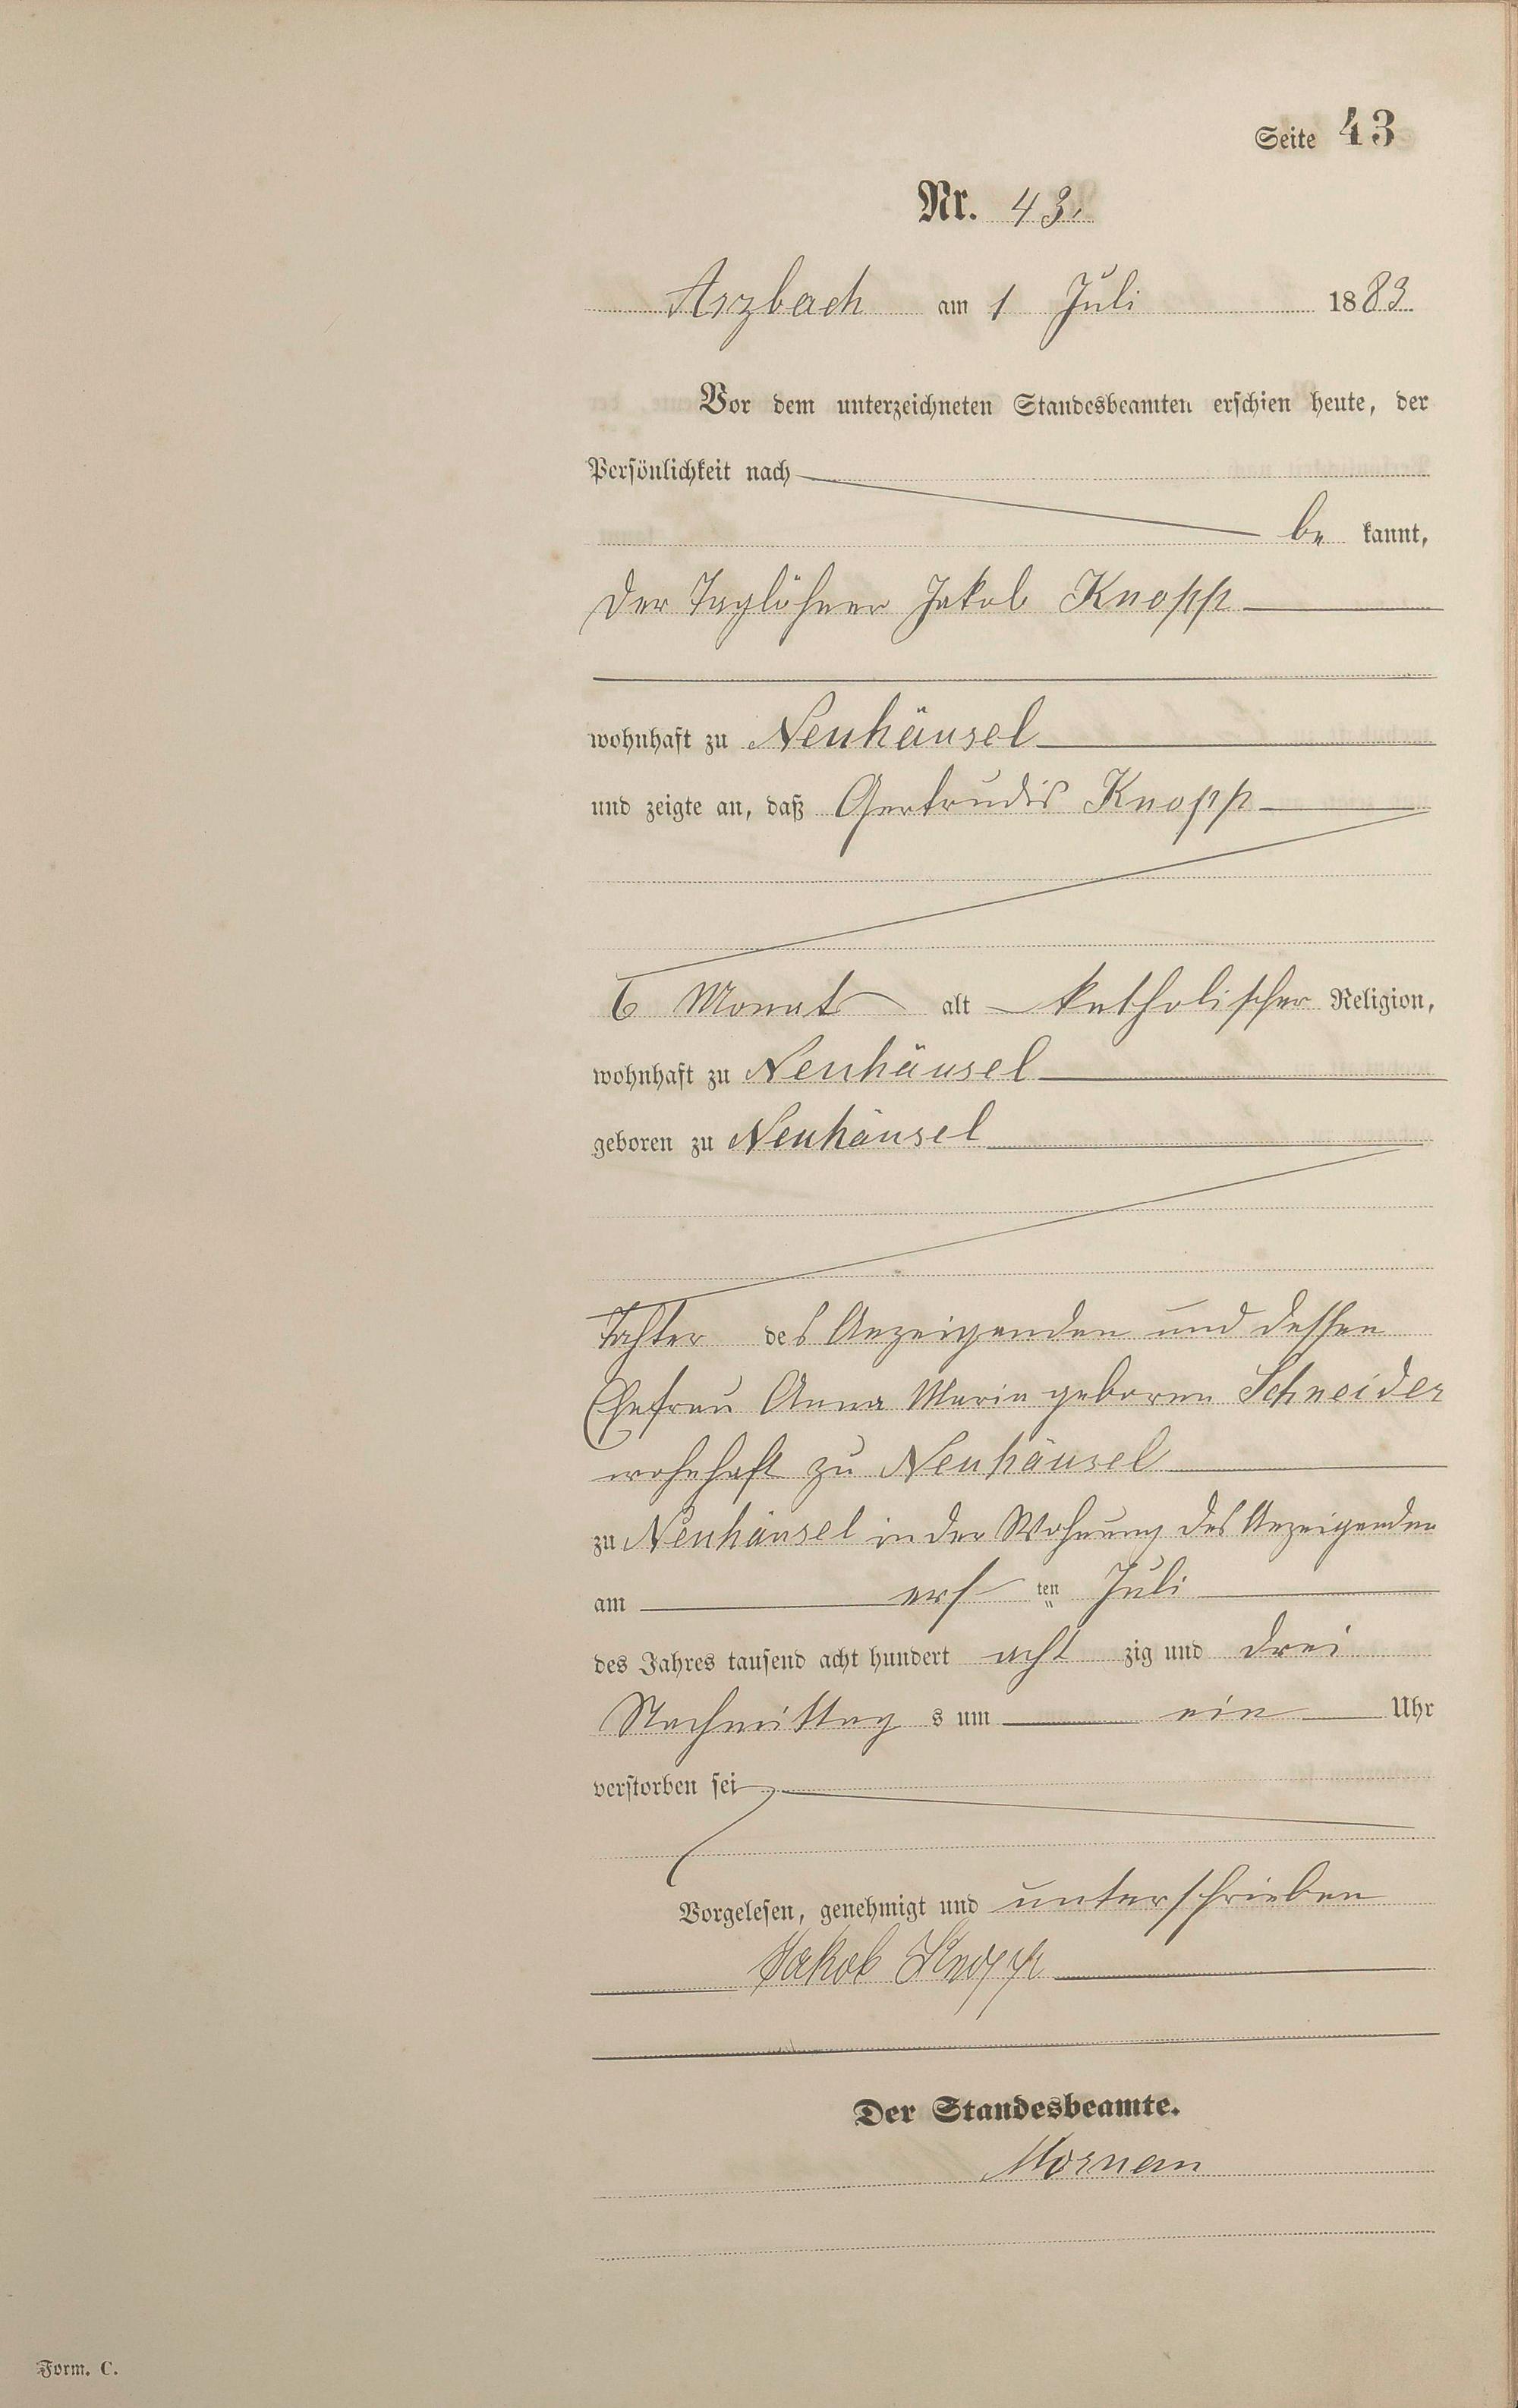 Seite 43
Nr. 43.
Arzbach am 1 Juli 1883
Vor dem unterzeichneten Standesbeamten erschien heute, der
Persönlichkeit nach
be kannt,
der Taglöhner Jakob Knopp
wohnhaft zu Neuhäusel
und zeigte an, daß Gertrudis Knopp
6 Monat alt katholischer Religion,
wohnhaft zu Neuhäusel
geboren zu Neuhäusel
Tochter des Anzeigenden und dessen
Ehefrau Anna Maria geboren Schneider
wohnhaft zu Neuhäusel
zu Neuhäusel in der Wohnung des Anzeigenden
am ers ten Juli
des Jahres tausend acht hundert acht zig und drei
Nachmittag s um ein Uhr
verstorben sei
Vorgelesen, genehmigt und unterschrieben
Jakob Knopp
Der Standesbeamte.
Form. C.